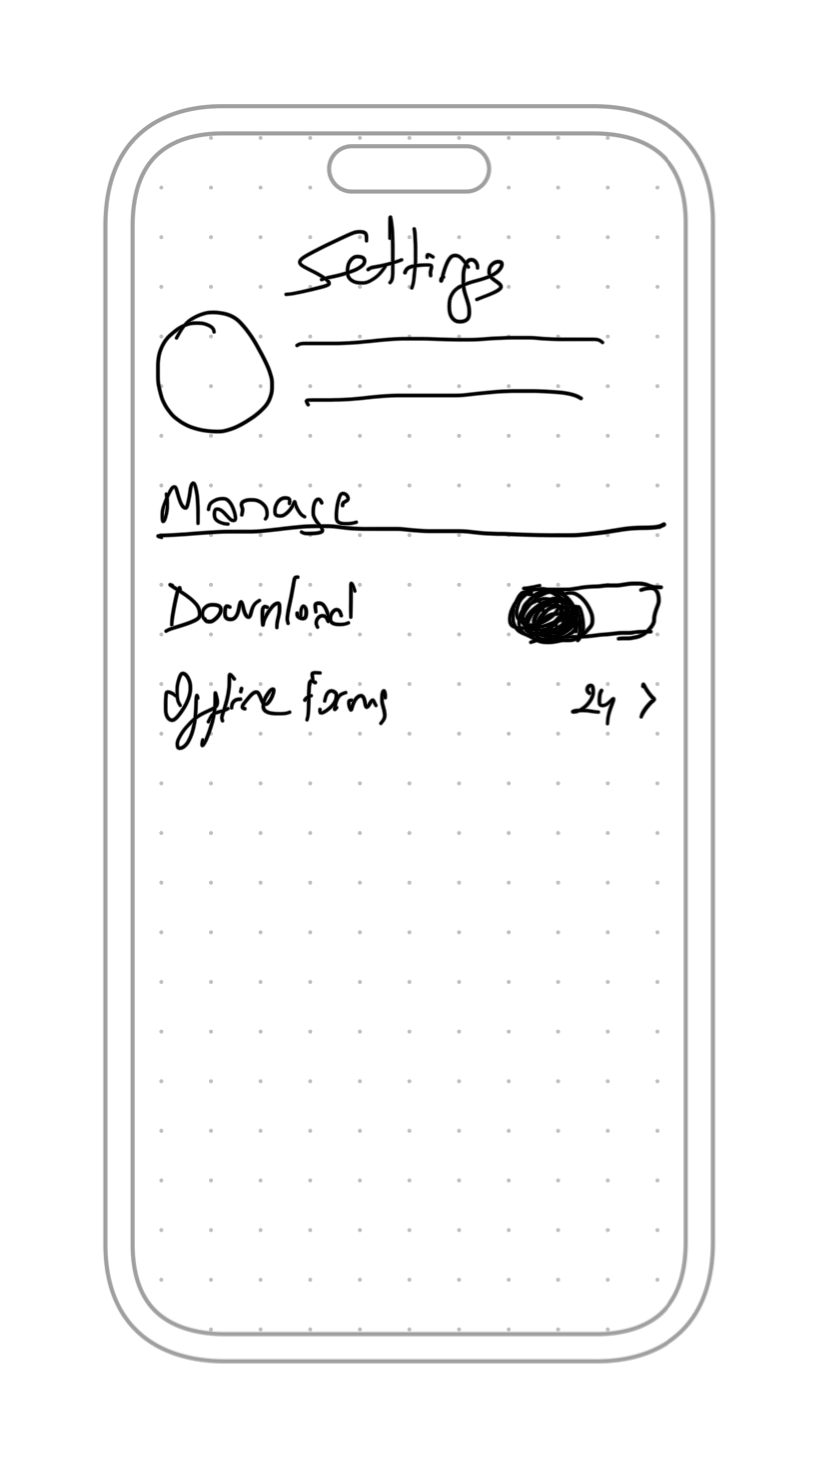 Settings
Manage
Download
Offline forms 24 >